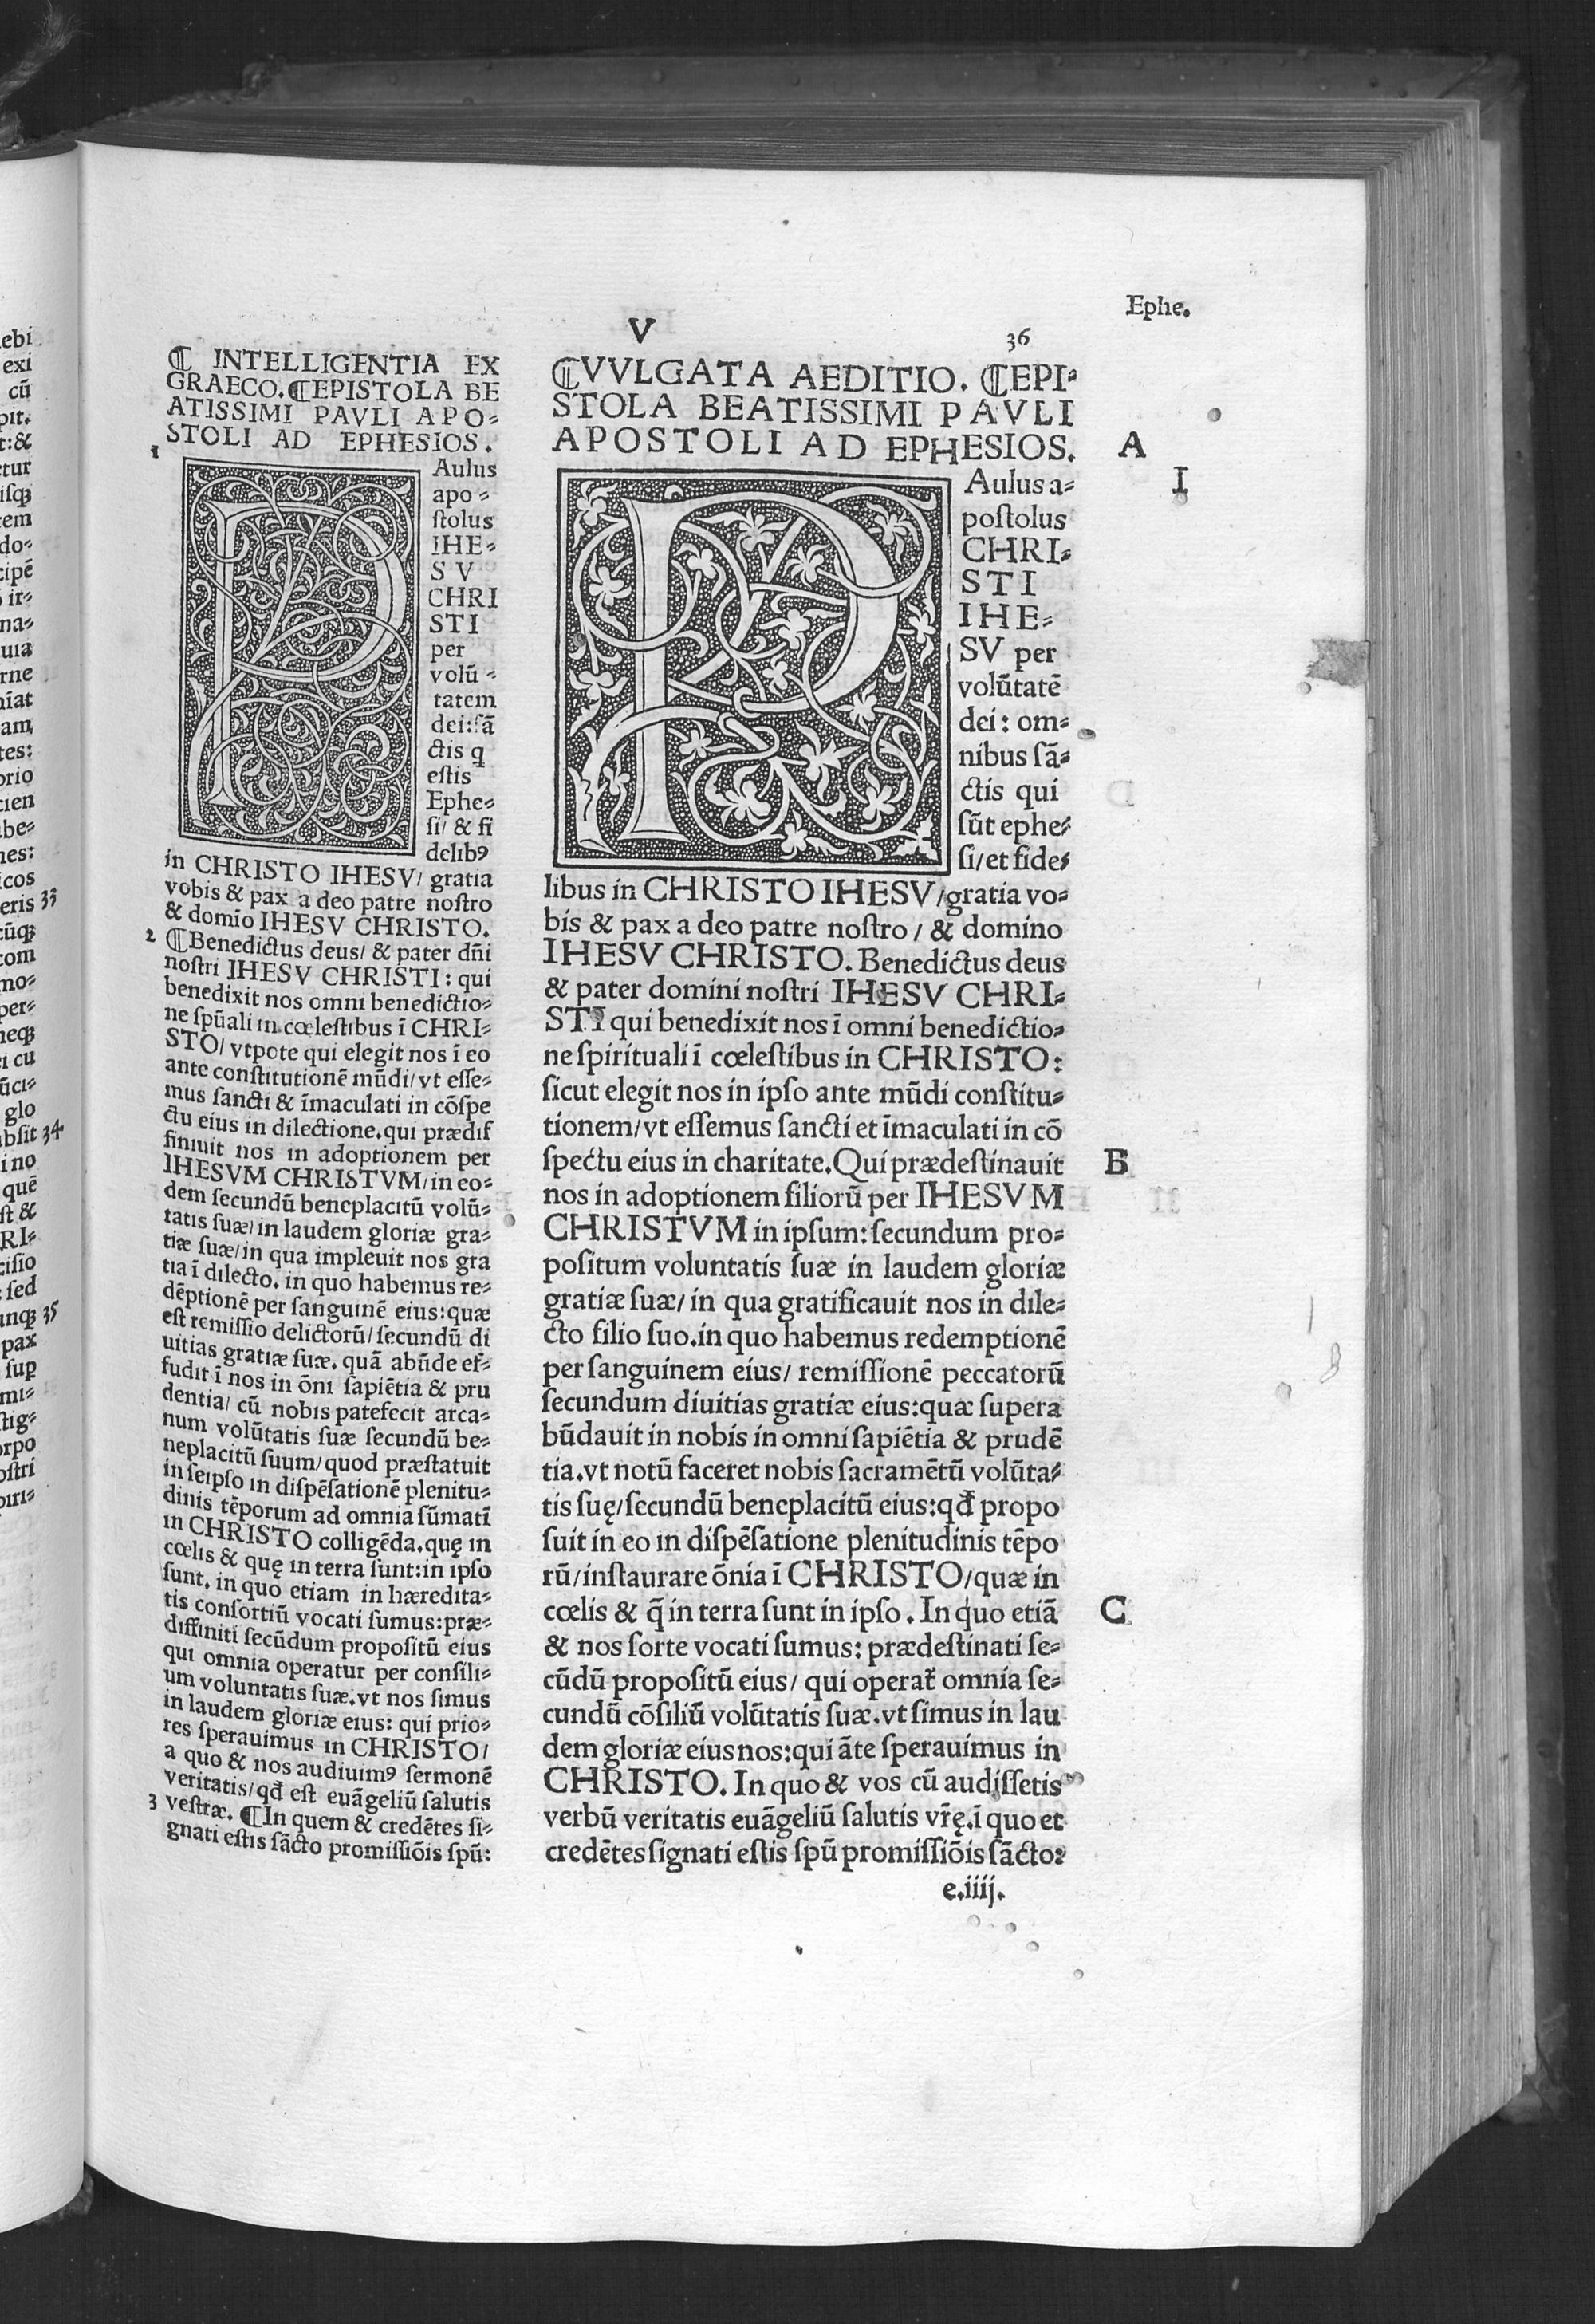 ebi
exi
cū
pit.
t:&
etur
iſqꝫ
tem
do-
cipē
ir-
na-
uia
rne
nīat
am,
tes:
orio
cien
abe-
nes:
icos
eris 33
cūqꝫ
com
mo-
per-
neqꝫ
ei cu
ūci-
glo
abſit 34
i no
quē
ſt &
RI-
ciſio
ſed
unqꝫ 35
pax
ſup
mi-
ſtig-
orpo
oſtri
piri-
Ephe.
V
36
¶ INTELLIGENTIA EX
GRAECO. ¶EPISTOLA BE
ATISSIMI PAVLI APO-
STOLI AD EPHESIOS.
1
PAulus
apo-
ſtolus
IHE-
SV
CHRI
STI
per
volū-
tatem
dei:ſā
ctis q
eſtis
Ephe-
ſi/ & fi
delibꝰ
in CHRISTO IHESV/ gratia
vobis & pax a deo patre noſtro
& domīo IHESV CHRISTO.
2 ¶Benedictus deus/ & pater dn̄i
noſtri IHESV CHRISTI: qui
benedixit nos omni benedictio-
ne ſpūali in cœleſtibus ī CHRI-
STO/ vtpote qui elegit nos ī eo
ante conſtitutionē mūdi/ vt eſſe-
mus ſancti & īmaculati in cōſpe
ctu eius in dilectione. qui prædif
finiuit nos in adoptionem per
IHESVM CHRISTVM/ in eo-
dem ſecundū beneplacitū volū-
tatis ſuæ/ in laudem gloriæ gra-
tiæ ſuæ/ in qua impleuit nos gra
tia ī dilecto. in quo habemus re-
dēptionē per ſanguinē eius: quæ
eſt remiſſio delictorū/ ſecundū di
uitias gratiæ ſuæ. quā abūde ef-
fudit ī nos in ōni ſapiētia & pru
dentia/ cū nobis patefecit arca-
num volūtatis ſuæ ſecundū be-
neplacitū ſuum/ quod præſtatuit
in ſeipſo in diſpēſationē plenitu-
dinis tēporum ad omnia ſūmatī
in CHRISTO colligēda. quę in
cœlis & quę in terra ſunt: in ipſo
ſunt. in quo etiam in hæredita-
tis conſortiū vocati ſumus: præ-
diffiniti ſecūdum propoſitū eius
qui omnia operatur per conſili-
um voluntatis ſuæ. vt nos ſimus
in laudem gloriæ eius: qui prio-
res ſperauimus in CHRISTO/
a quo & nos audiuimꝰ ſermonē
veritatis/ qđ eſt euāgeliū ſalutis
3 veſtræ. ¶In quem & credētes ſi-
gnati eſtis ſācto promiſſiōis ſpū:
¶VVLGATA AEDITIO. ¶EPI-
STOLA BEATISSIMI PAVLI
APOSTOLI AD EPHESIOS. A
PAulus a- I
poſtolus
CHRI-
STI
IHE-
SV per
volūtatē
dei: om-
nibus ſā-
ctis qui
ſūt ephe-
ſi/ et fide-
libus in CHRISTO IHESV/ gratia vo-
bis & pax a deo patre noſtro/ & domino
IHESV CHRISTO. Benedictus deus
& pater domini noſtri IHESV CHRI-
STI qui benedixit nos ī omni benedictio-
ne ſpirituali ī cœleſtibus in CHRISTO:
ſicut elegit nos in ipſo ante mūdi conſtitu-
tionem/ vt eſſemus ſancti et īmaculati in cō
ſpectu eius in charitate. Qui prædeſtinauit B
nos in adoptionem filiorū per IHESVM
CHRISTVM in ipſum: ſecundum pro-
poſitum voluntatis ſuæ in laudem gloriæ
gratiæ ſuæ/ in qua gratificauit nos in dile-
cto filio ſuo. in quo habemus redemptionē
per ſanguinem eius/ remiſſionē peccatorū
ſecundum diuitias gratiæ eius: quæ ſupera
būdauit in nobis in omni ſapiētia & prudē
tia. vt notū faceret nobis ſacramētū volūta-
tis ſuę/ ſecundū beneplacitū eius: qđ propo
ſuit in eo in diſpēſatione plenitudinis tēpo
rū/ inſtaurare ōnia ī CHRISTO/ quæ in
cœlis & q̄ in terra ſunt in ipſo. In quo etiā C
& nos ſorte vocati ſumus: prædeſtinati ſe-
cūdū propoſitū eius/ qui operat̃ omnia ſe-
cundū cōſiliū volūtatis ſuæ. vt ſimus in lau
dem gloriæ eius nos: qui āte ſperauimus in
CHRISTO. In quo & vos cū audiſſetis
verbū veritatis euāgeliū ſalutis vr̄ę. ī quo et
credētes ſignati eſtis ſpū promiſſiōis ſācto:
e.iiij.